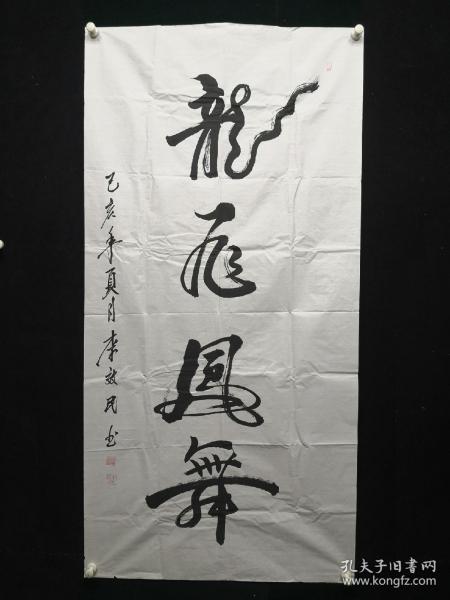 龍飛鳳舞
己亥年夏月李效民书
孔夫子旧书网
www.kongfz.com